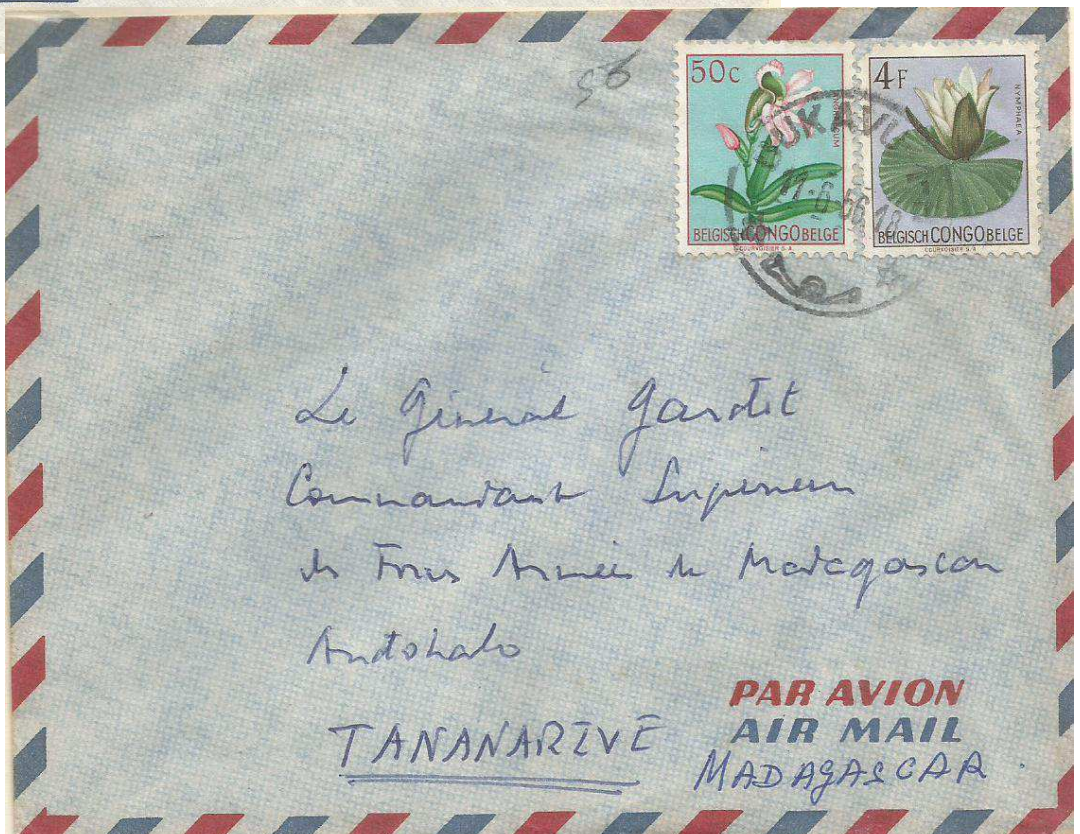 56
50c
ANGRAECUM
BELGISCH CONGO BELGE
COURVOISIER S.A.
4F
NYMPHAEA
BELGISCH CONGO BELGE
COURVOISIER S.A.
BUKAVU
11-6-56 18
Le Général Gardet
Commandant Supérieur
des Forces Armées de Madagascar
Andohalo
TANANARIVE
PAR AVION
AIR MAIL
MADAGASCAR